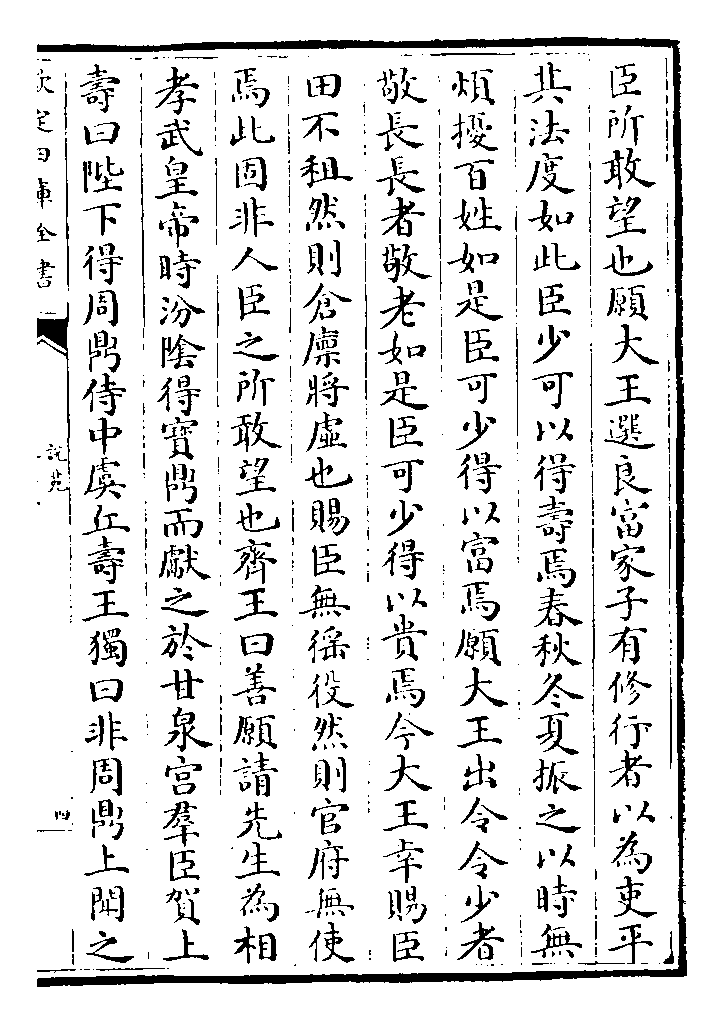 臣所敢望也願大王選良富家子有修行者以為吏平
其法度如此臣少可以得壽焉春秋冬夏振之以時無
煩擾百姓如是臣可少得以富焉願大王出令令少者
敬長長者敬老如是臣可少得以貴焉今大王幸賜臣
田不租然則倉廩將虛也賜臣無徭役然則官府無使
焉此固非人臣之所敢望也齊王曰善願請先生為相
孝武皇帝時汾陰得寶鼎而獻之於甘泉宮羣臣賀上
壽曰陛下得周鼎侍中虞丘壽王獨曰非周鼎上聞之
欽定四庫全書
說苑
四